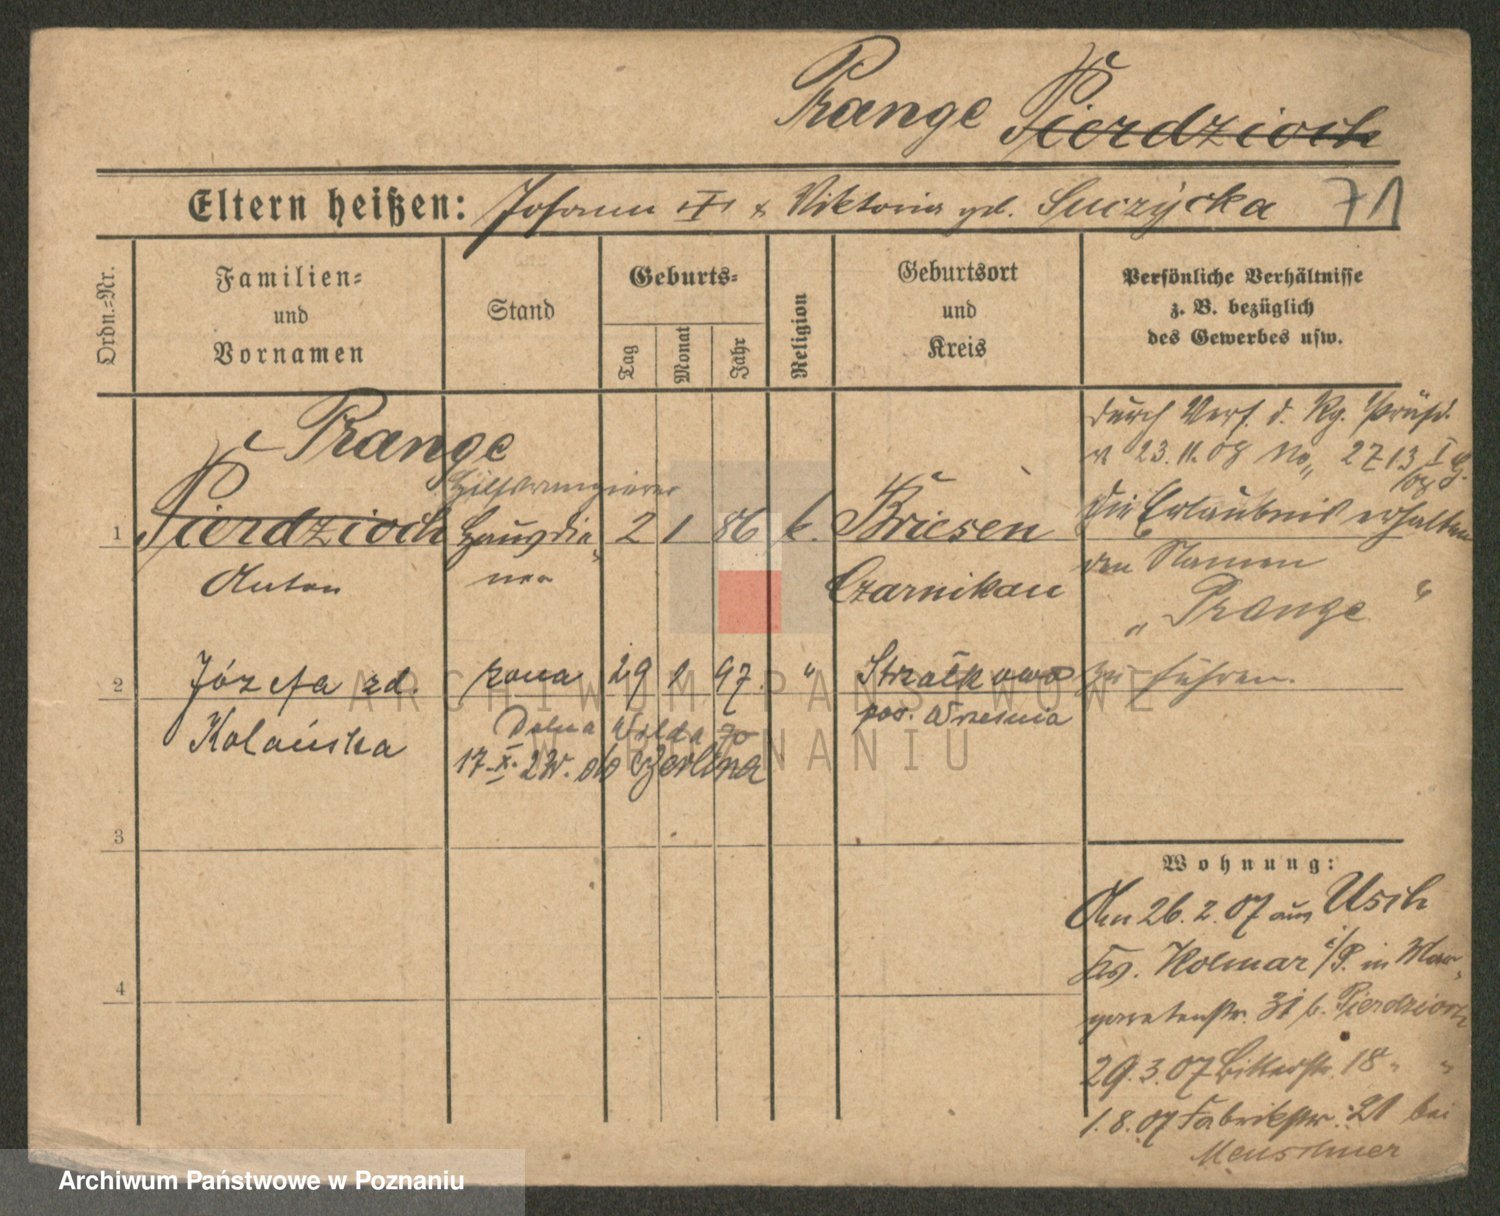 Prange Pierdzioch
Eltern heißen: Johann III & Viktoria geb. Suczycka 71
Ordn.=Nr.
Familien= und Vornamen
Stand
Geburts=
Tag
Monat
Jahr
Religion
Geburtsort und Kreis
Persönliche Verhältnisse
z. B. bezüglich
des Gewerbes usw.
Prange
Hilfsrangierer
1 Pierdzioch Hausdie- 2 1 86 k. Briesen
Anton ner Czarnikau
2 Józefa zd. żona 29 1 97. " Strzałkowo
Kolańska pow. Września
Dolna Wilda 70
17.X.2 do Berlina
3
4
durch Verf. d. Rg. Präsd.
v 23.11.08 No. 2713 I
die Erlaubnis erhalten
den Namen
„Prange“
zu führen.
Wohnung:
An 26.2.07 aus Usch
Krs. Kolmar i/P. in Mar-
garetenstr. 31 b. Pierdzioch
29.3.07 Bitterstr. 18 " "
1.8.07 Fabrikstr. 21 bei
Meuschner
ARCHIWUM PAŃSTWOWE
W POZNANIU
Archiwum Państwowe w Poznaniu